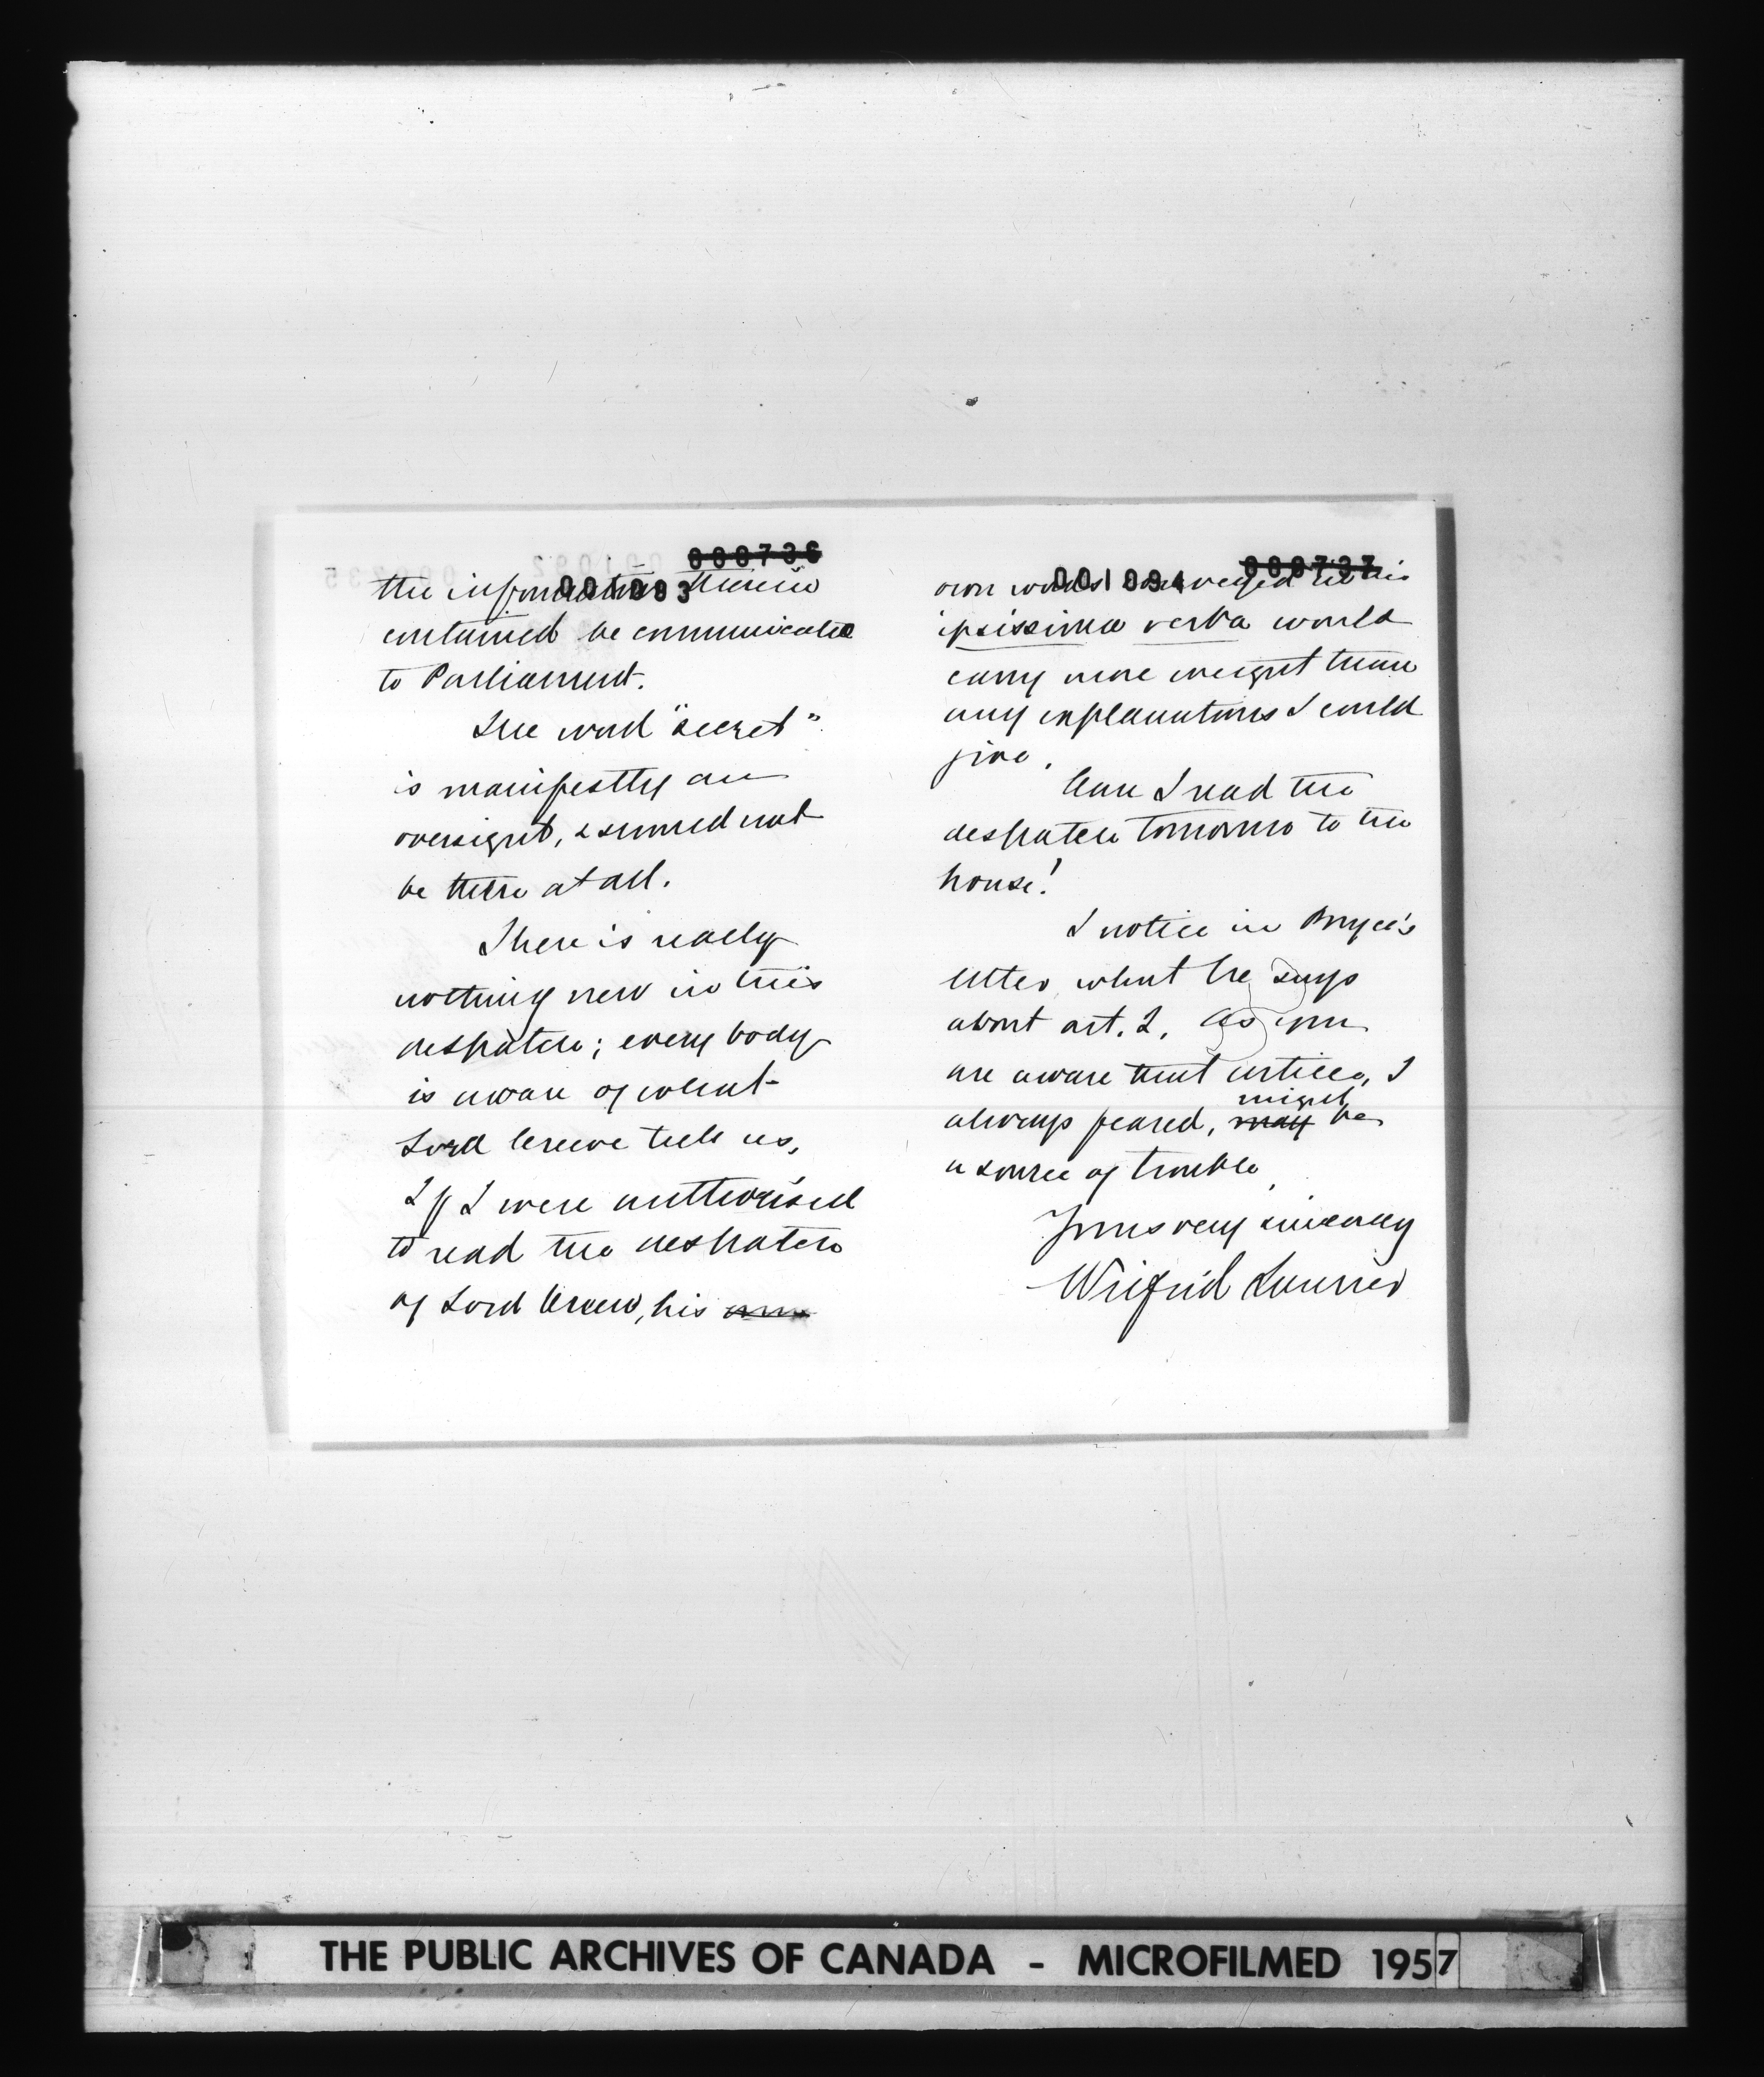 000736
001093
the information therein
contained be communicated
to Parliament.
The word "secret"
is manifestly an
oversight, & should not
be there at all.
There is really
nothing new in this
despatch; every body
is aware of what
Lord Crewe tells us,
If I were authorised
to read the despatch
of Lord Crewe, his own
000737
001094
own words conveyed in his
ipsissima verba would
carry more weight than
any explanations I could
give.
Can I read the
despatch tomorrow to the
house!
I notice in Bryce's
letter what he says
about art. 2. As you
are aware that article, I
always feared, may might be
a source of trouble,
Yours very sincerely
Wilfrid Laurier
THE PUBLIC ARCHIVES OF CANADA - MICROFILMED 1957